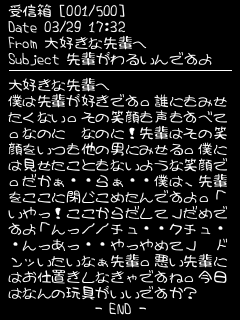 受信箱 [001/500]
Date 03/29 17:32
From 大好きな先輩へ
Subject 先輩がわるいんですよ
大好きな先輩へ
僕は先輩が好きです。誰にもみせ
たくない。その笑顔も声もあべて
。なのに　なのに！先輩はその笑
顔をいつも他の男にみせる。僕に
は見せたこともないような笑顔で
。だかぁ・・らぁ・・僕は、先輩
をここに閉じこめたんですよ。「
いやっ！ここからだして」だめで
すよ「んっ／／チュ・・クチュ・
・んっあっ・・やっやめて」　ド
ンッいたいなぁ先輩。悪い先輩に
はお仕置きしなきゃですね。今日
はなんの玩具がいいですか？
- END -